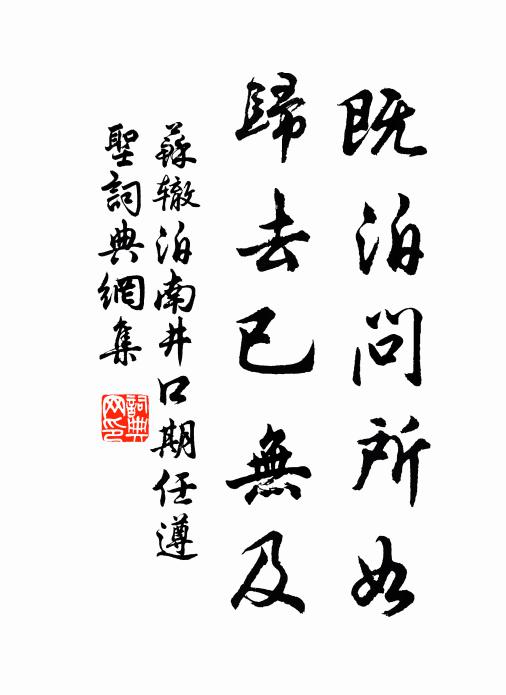 既泊问所如
歸去已無及
蘇辙泊南井口期任遵
聖詞典網集
詞典
网印